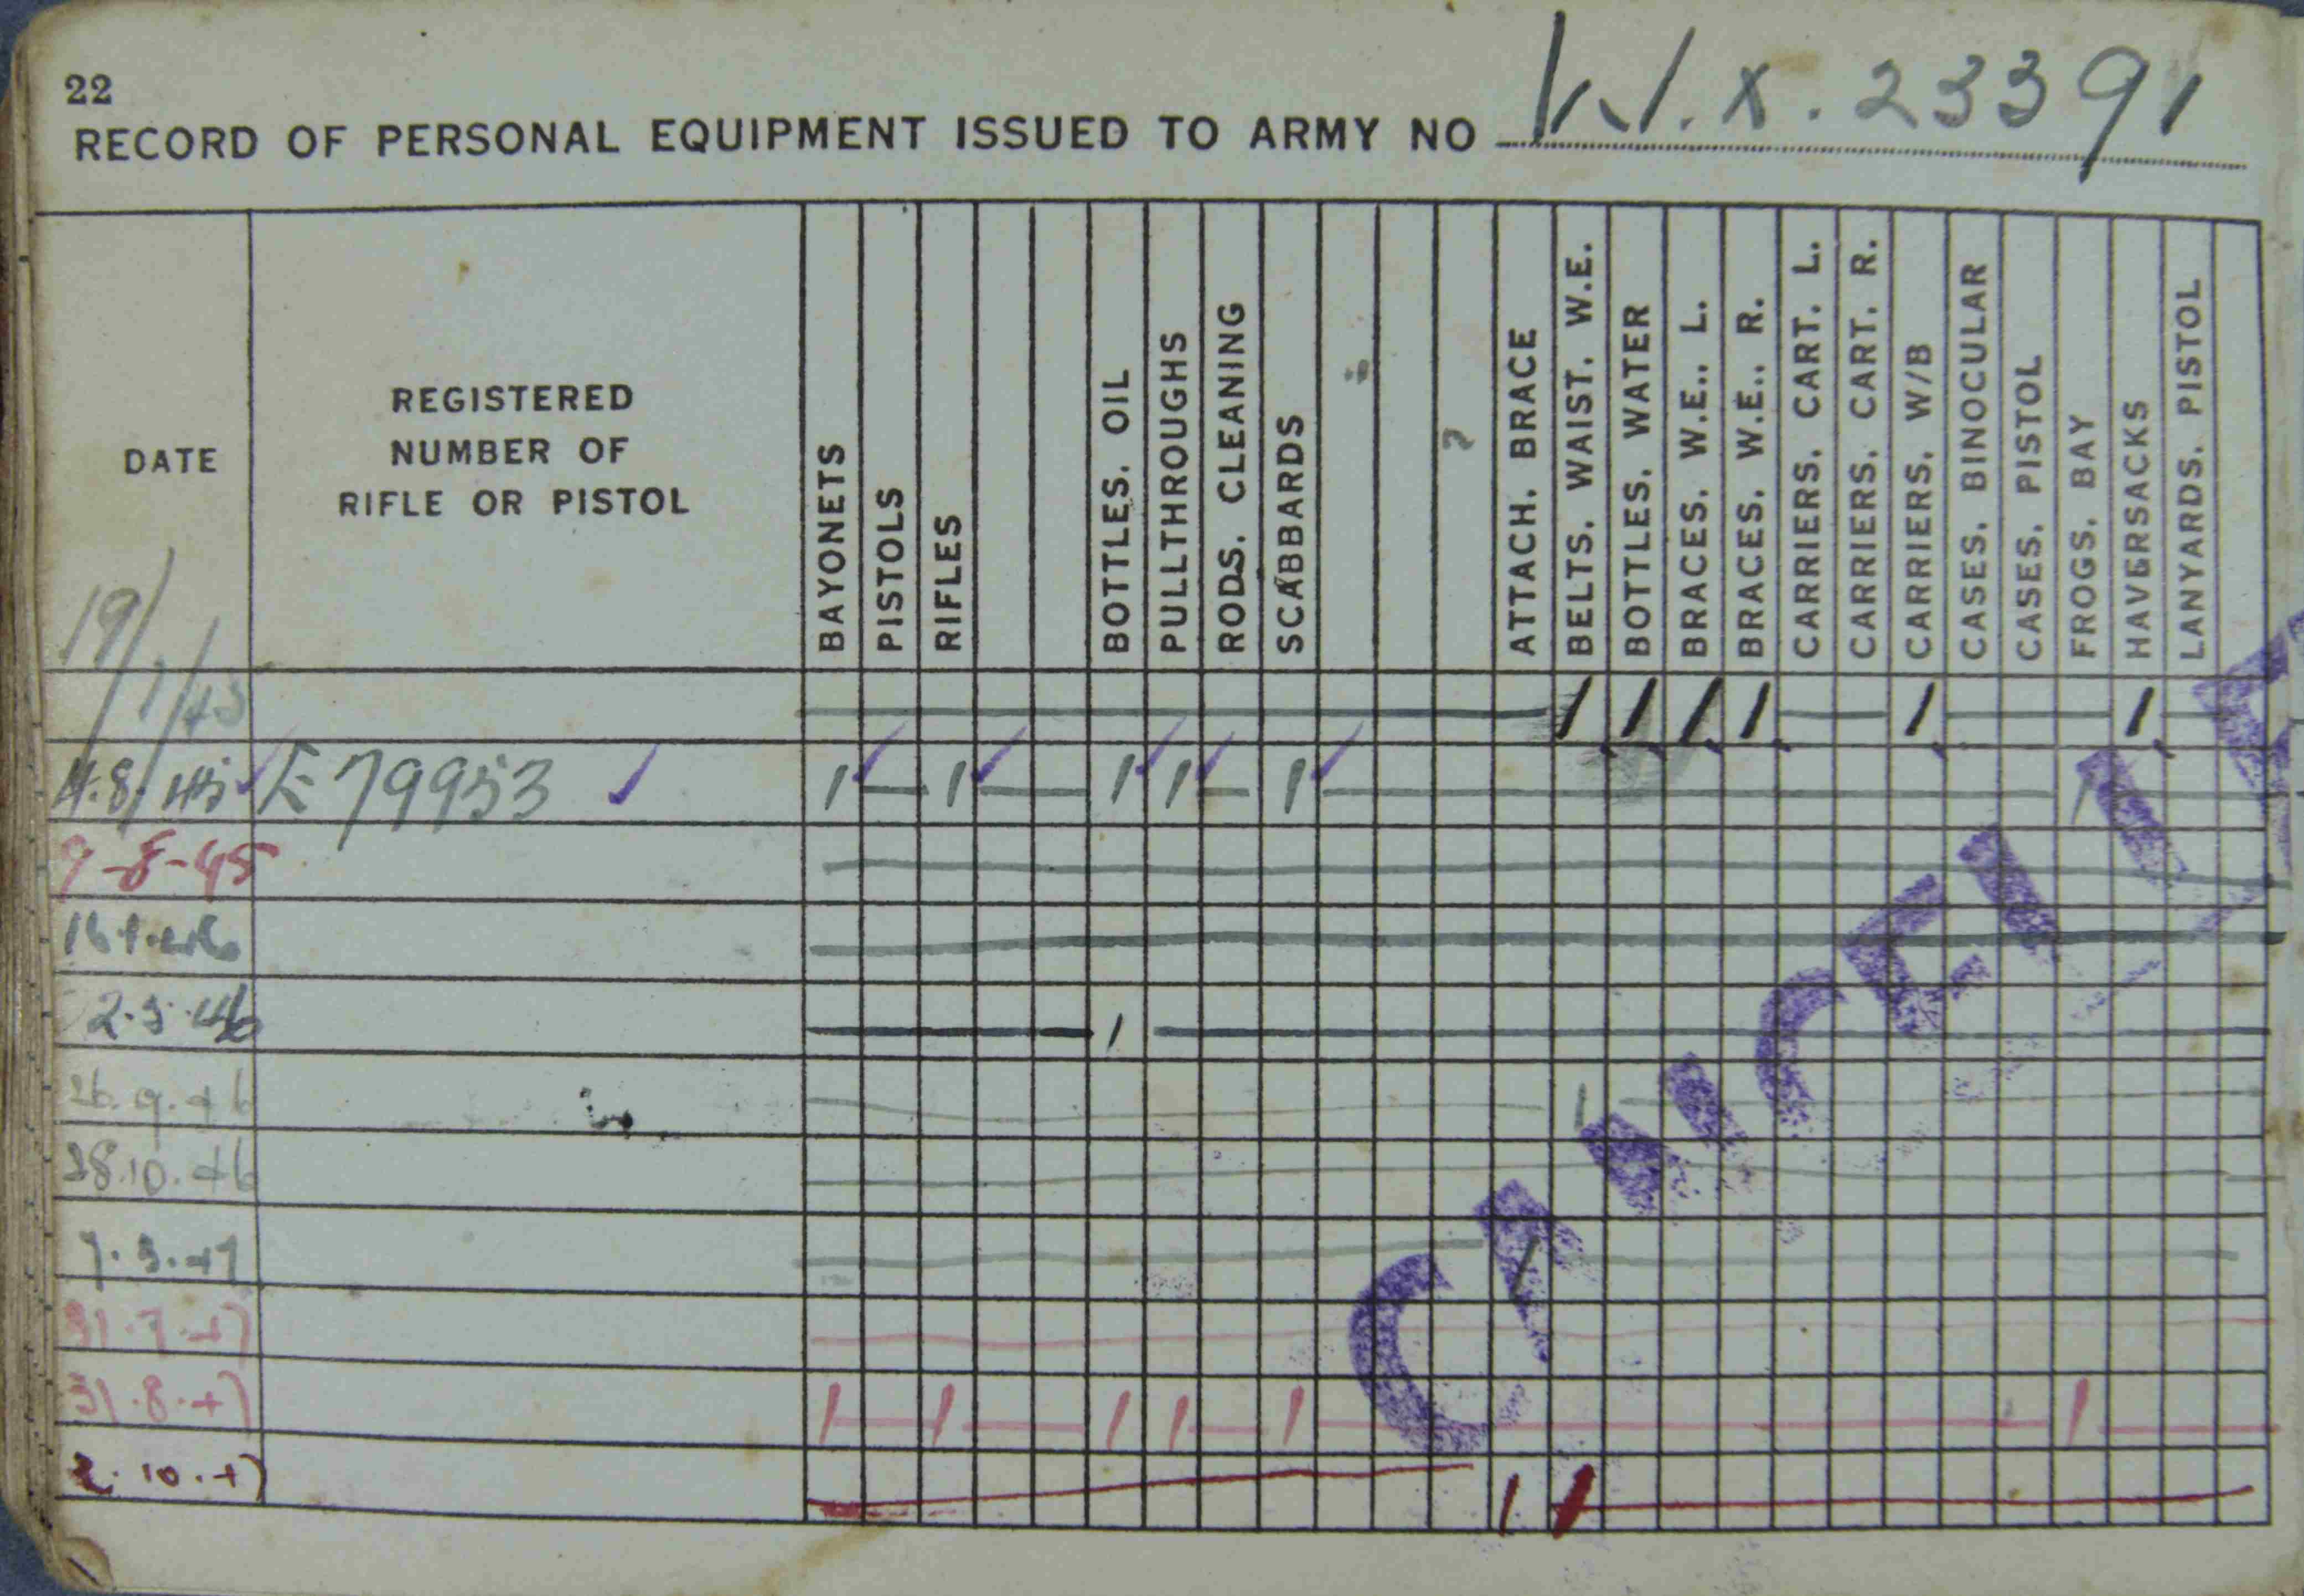 22
RECORD OF PERSONAL EQUIPMENT ISSUED TO ARMY NO W.X.23391
DATE
REGISTERED
NUMBER OF
RIFLE OR PISTOL
BAYONETS
PISTOLS
RIFLES
BOTTLES. OIL
PULLTHROUGHS
RODS. CLEANING
SCABBARDS
ATTACH. BRACE
BELTS. WAIST. W.E.
BOTTLES. WATER
BRACES. W.E.. L.
BRACES. W.E.. R.
CARRIERS. CART. L.
CARRIERS. CART. R.
CARRIERS. W/B
CASES. BINOCULAR
CASES. PISTOL
FROGS. BAY
HAVERSACKS
LANYARDS. PISTOL
19/1/45 1 1 1 1 1 1
4.8.45 E79953 1 1 1 1 1 1
7-8-45
16.1.46
2.3.46 1
26.9.46 1
28.10.46
7.3.47 1
31.7.47
31.8.47 1 1 1 1 1 1
2.10.47 1 1
CANCELLED